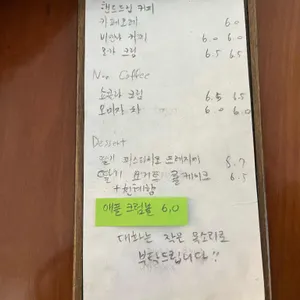 핸드드립 커피
카페오레 6.0
비엔나 커피 6.0 6.0
모카 크림 6.5 6.5
Non Coffee
쇼콜라 크림 6.5 6.5
오미자 차 6.0 6.0
Dessert
딸기 피스타치오 프레지에 8.7
딸기 요거트 롤케이크 6.5
애플 크럼블 6.0
대화는 작은 목소리로
부탁드립니다